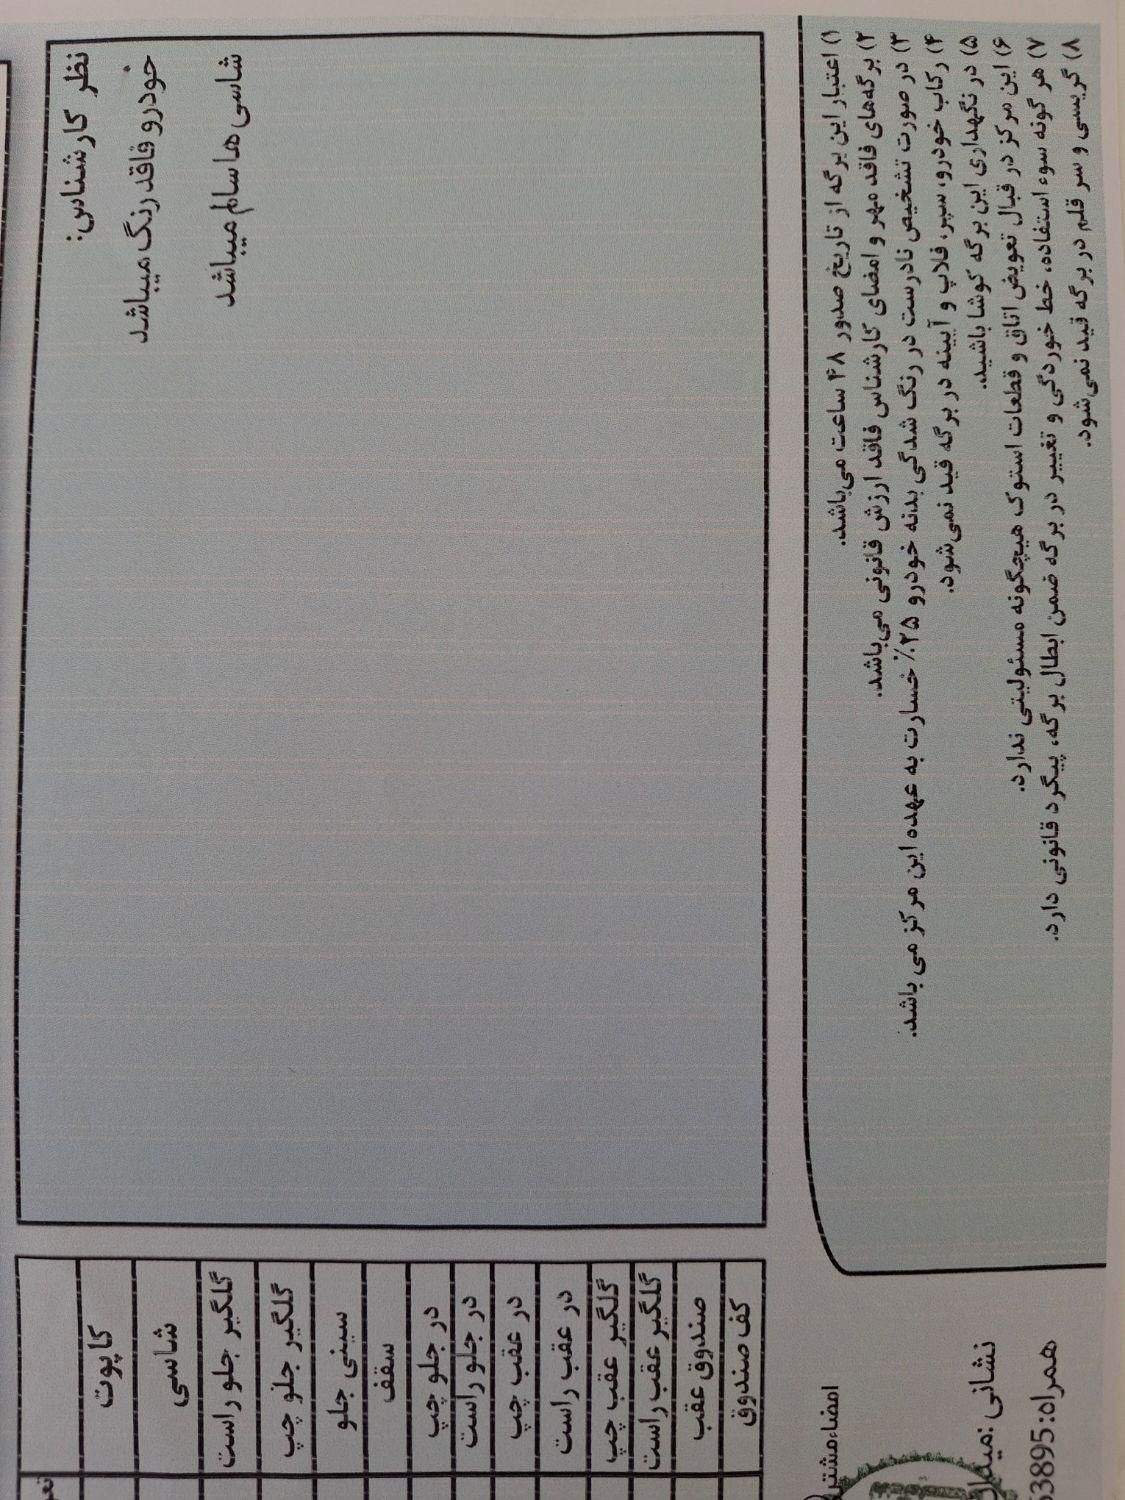 نظر کارشناس:
خودرو فاقد رنگ میباشد
شاسی ها سالم میباشد
کاپوت
شاسی
گلگیر جلو راست
گلگیر جلو چپ
سینی جلو
سقف
در جلو چپ
در جلو راست
در عقب چپ
در عقب راست
گلگیر عقب چپ
گلگیر عقب راست
صندوق عقب
کف صندوق
۱) اعتبار این برگه از تاریخ صدور ۴۸ ساعت می‌باشد.
۲) برگه‌های فاقد مهر و امضای کارشناس فاقد ارزش قانونی می‌باشد.
۳) در صورت تشخیص نادرست در رنگ شدگی بدنه خودرو ۲۵٪ خسارت به عهده این مرکز می باشد.
۴) رکاب خودرو، سپر، فلاپ و آیینه در برگه قید نمی‌شود.
۵) در نگهداری این برگه کوشا باشید.
۶) این مرکز در قبال تعویض اتاق و قطعات استوک هیچگونه مسئولیتی ندارد.
۷) هر گونه سوء استفاده، خط خوردگی و تغییر در برگه ضمن ابطال برگه، پیگرد قانونی دارد.
۸) گریسی و سر قلم در برگه قید نمی‌شود.
امضاء
نشانی :
همراه: